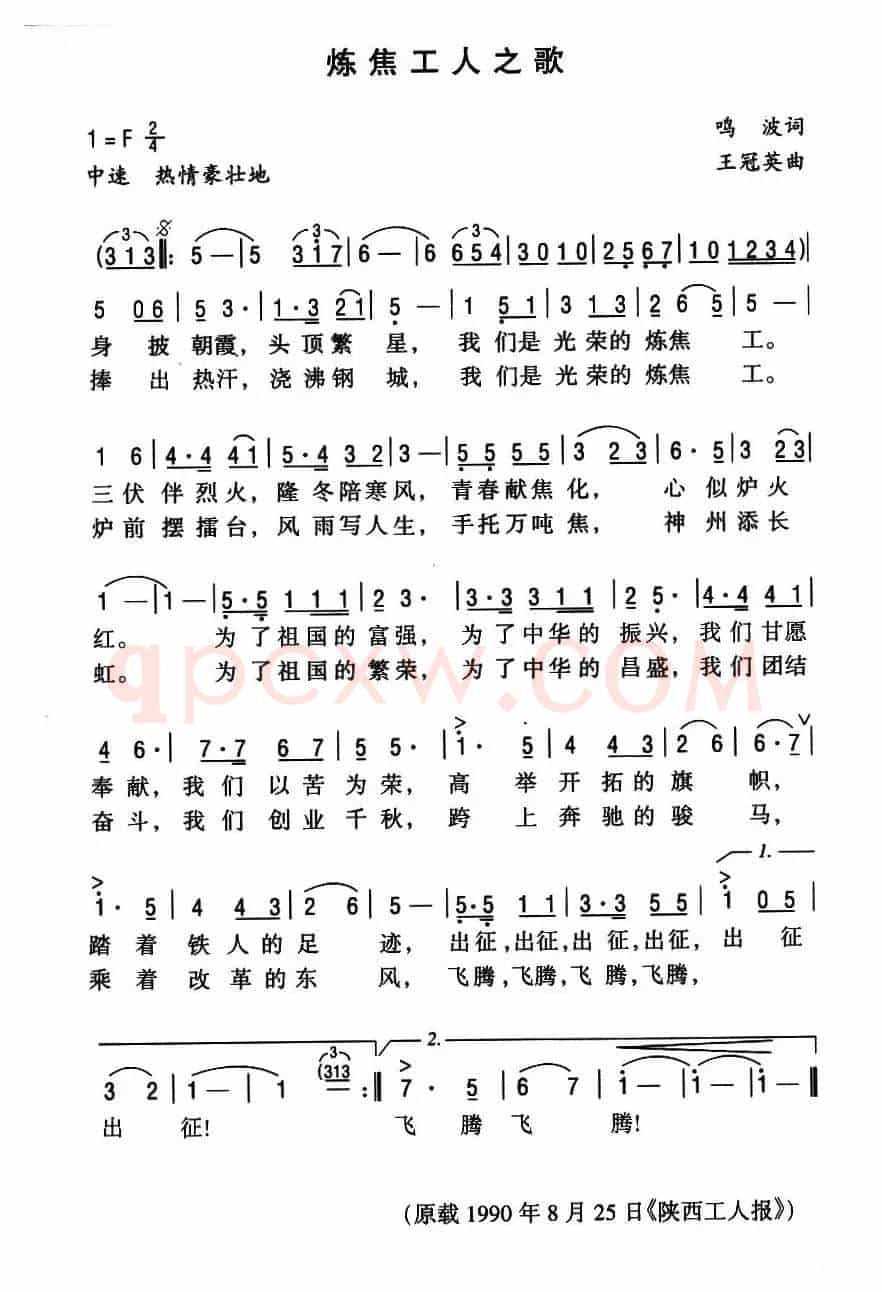 炼焦工人之歌
1=F 2/4
鸣 波词
中速 热情豪壮地
王冠英曲
3 3 3
(313‖: 5—|5 317|6—|6 654|3010|2567|10 1234)|
5 06|53·|1·3 21|5—|1 51|3 13|2 65|5—|
身 披 朝霞,头 顶繁 星, 我 们是 光荣的 炼焦 工。
捧 出 热汗,浇 沸钢 城, 我 们是 光荣的 炼焦 工。
1 6|4·4 41|5·4 32|3—|55 55|3 23|6·5|2 23|
三伏 伴烈火,隆冬陪寒风,青春献焦化, 心 似炉火
炉前 摆擂台,风雨写人生,手托万吨焦, 神 州添长
1—|1—|5·5 111|23·|3·3 311|25·|4·4 41|
红。 为了祖国的富强, 为了中华的 振兴,我们甘愿
虹。 为了祖国的繁荣, 为了中华的 昌盛,我们团结
qpcxw.COM
46·|7·7 67|55·|1·5|4 43|2 6|6·7|
奉献,我们 以苦为荣,高 举开拓的旗 帜,
奋斗,我们 创业千秋,跨 上奔驰的骏 马,
1.
1·5|4 43|2 6|5—|5·5 11|3·3 55|1 05|
踏着 铁人的足 迹, 出征,出征,出征,出征,出 征
乘着 改革的东 风, 飞腾,飞腾,飞腾,飞腾,
2.
3 3
3 2|1—|1 (313:‖7·5|6 7|1—|1—|1—‖
出 征! 飞 腾飞 腾!
(原载1990年8月25日《陕西工人报》)